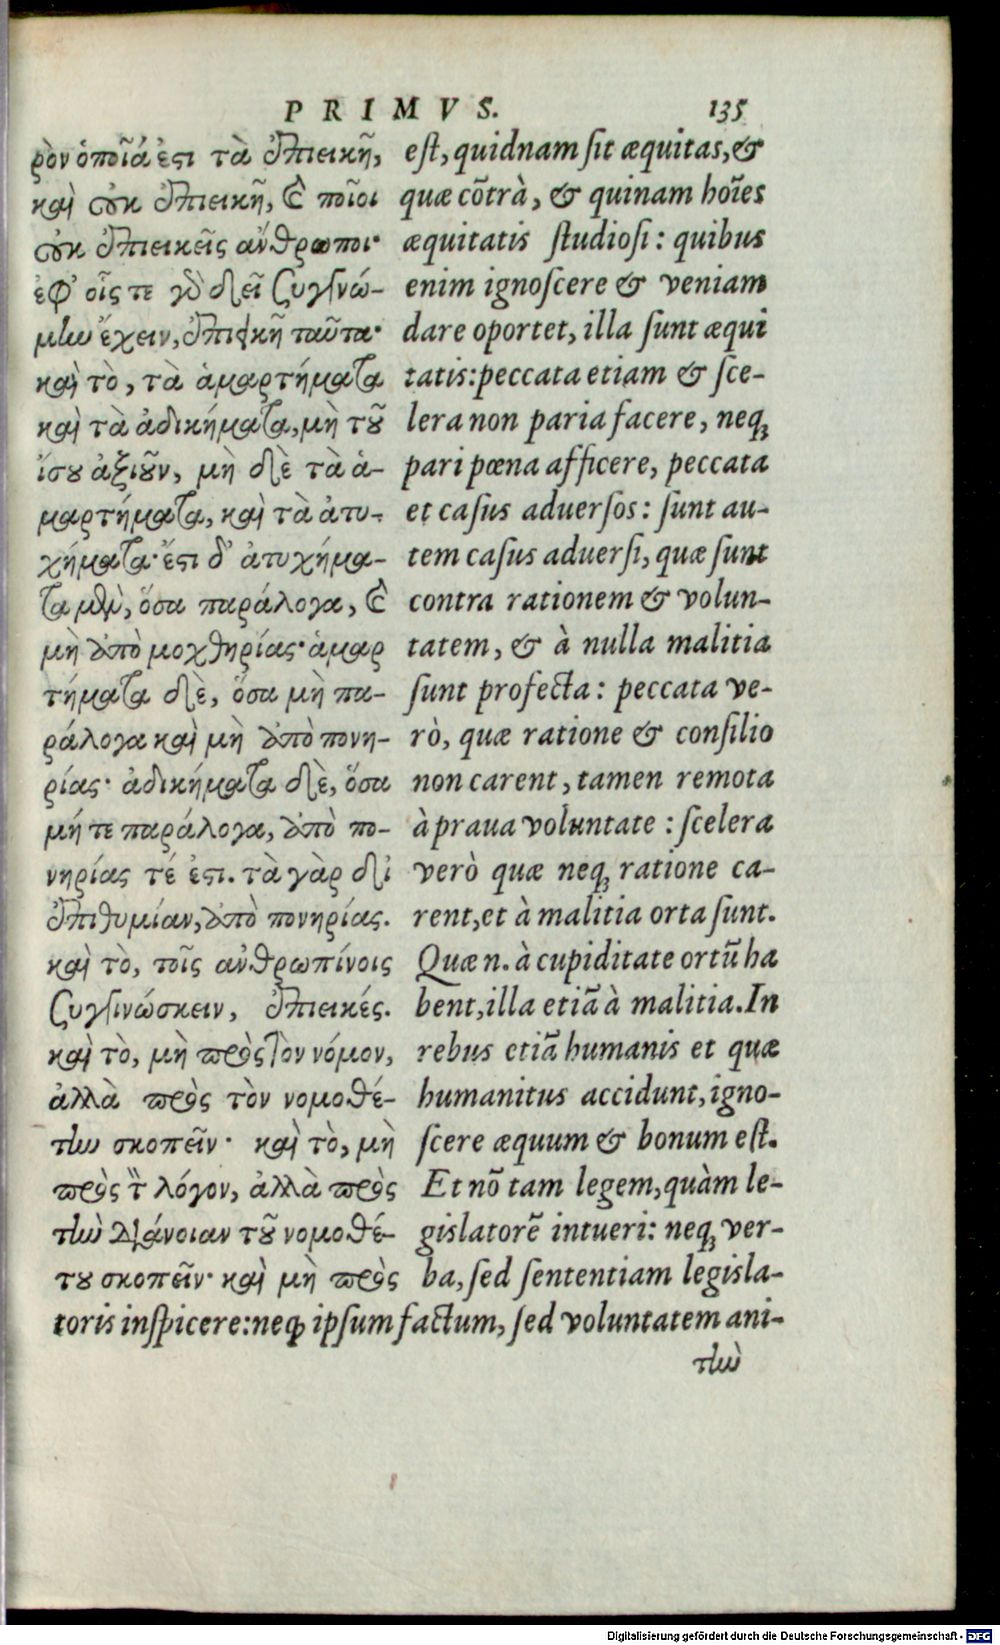 PRIMVS. 135
ρὸν ὁποῖά ἐστι τὰ ἐπιεικῆ,
καὶ οὐκ ἐπιεικῆ, καὶ ποῖοι
οὐκ ἐπιεικεῖς ἄνθρωποι·
ἐφ' οἷς τε γὰρ δεῖ συγγνώ-
μην ἔχειν, ἐπιεικῆ ταῦτα·
καὶ τὸ, τὰ ἁμαρτήματα
καὶ τὰ ἀδικήματα, μὴ τοῦ
ἴσου ἀξιοῦν, μὴ δὲ τὰ ἁ-
μαρτήματα, καὶ τὰ ἀτυ-
χήματα· ἔστι δ' ἀτυχήμα-
τα μὲν, ὅσα παράλογα, καὶ
μὴ ἀπὸ μοχθηρίας· ἁμαρ
τήματα δὲ, ὅσα μὴ πα-
ράλογα καὶ μὴ ἀπὸ πονη-
ρίας· ἀδικήματα δὲ, ὅσα
μήτε παράλογα, ἀπὸ πο-
νηρίας τέ ἐστι. τὰ γὰρ δι
ἐπιθυμίαν, ἀπὸ πονηρίας.
καὶ τὸ, τοῖς ἀνθρωπίνοις
συγγινώσκειν, ἐπιεικές.
καὶ τὸ, μὴ πρὸς τὸν νόμον,
ἀλλὰ πρὸς τὸν νομοθέ-
την σκοπεῖν· καὶ τὸ, μὴ
πρὸς τὸν λόγον, ἀλλὰ πρὸς
τὴν διάνοιαν τοῦ νομοθέ-
του σκοπεῖν· καὶ μὴ πρὸς
est, quidnam sit æquitas, &
quæ cōtrà, & quinam hoīes
æquitatis studiosi: quibus
enim ignoscere & veniam
dare oportet, illa sunt æqui
tatis: peccata etiam & sce-
lera non paria facere, neq;
pari pœna afficere, peccata
et casus aduersos: sunt au-
tem casus aduersi, quæ sunt
contra rationem & volun-
tatem, & à nulla malitia
sunt profecta: peccata ve-
rò, quæ ratione & consilio
non carent, tamen remota
à praua voluntate: scelera
verò quæ neq; ratione ca-
rent, et à malitia orta sunt.
Quæ n. à cupiditate ortū ha
bent, illa etiā à malitia. In
rebus etiā humanis et quæ
humanitus accidunt, igno-
scere æquum & bonum est.
Et nō tam legem, quàm le-
gislatorē intueri: neq; ver-
ba, sed sententiam legisla-
toris inspicere: neq; ipsum factum, sed voluntatem ani-
τὴν
Digitalisierung gefördert durch die Deutsche Forschungsgemeinschaft - DFG